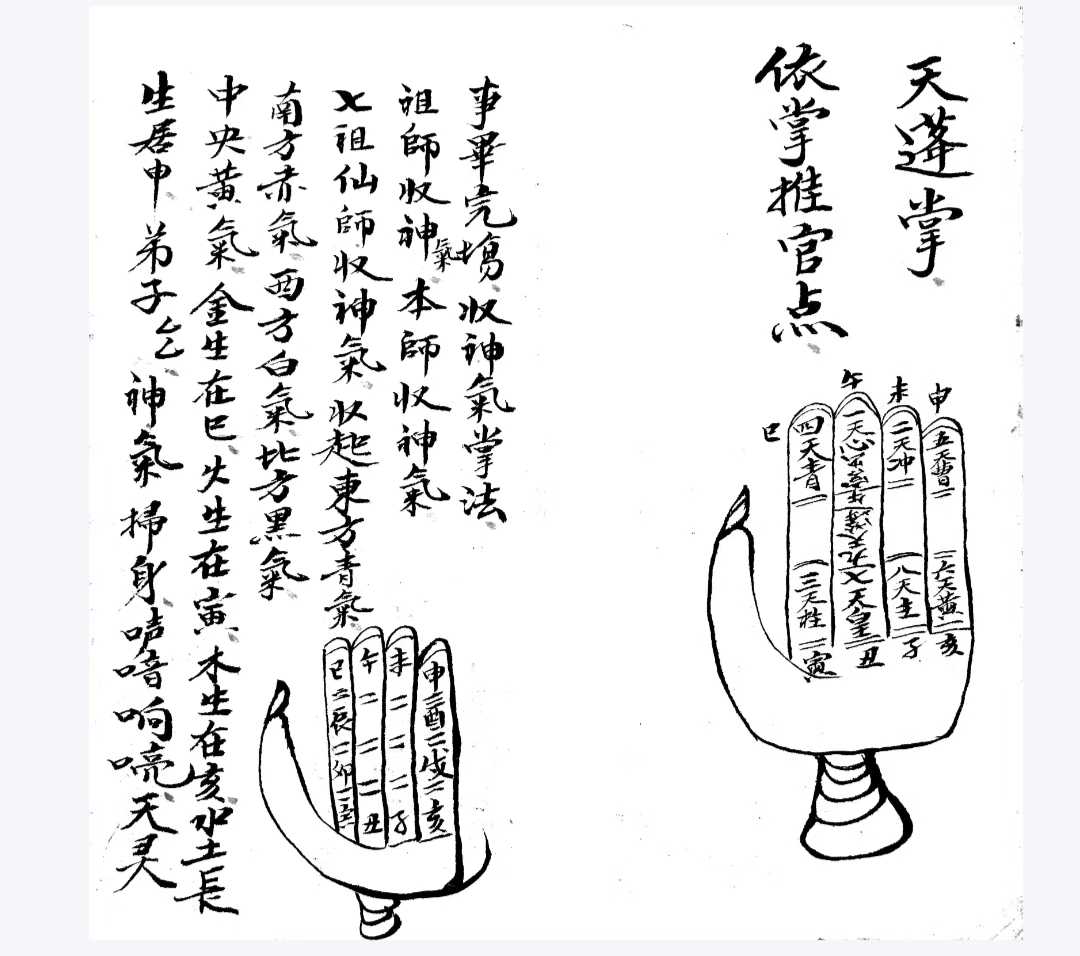 天蓬掌
依掌推官点
巳
午
未
申
四天青
一天心
二天冲
五天
三天柱
七天皇
八天主
六天黄
寅
丑
子
亥
事畢完塲收神氣掌法
祖師收神氣本師收神氣
七祖仙師收神氣收起東方青氣
南方赤氣西方白氣北方黑氣
中央黃氣金生在巳火生在寅木生在亥水土長
生居申弟子乞神氣掃身声喑响喨天灵
巳二辰二卯二
午二二二丑
未二二二子
申二酉二戌二亥